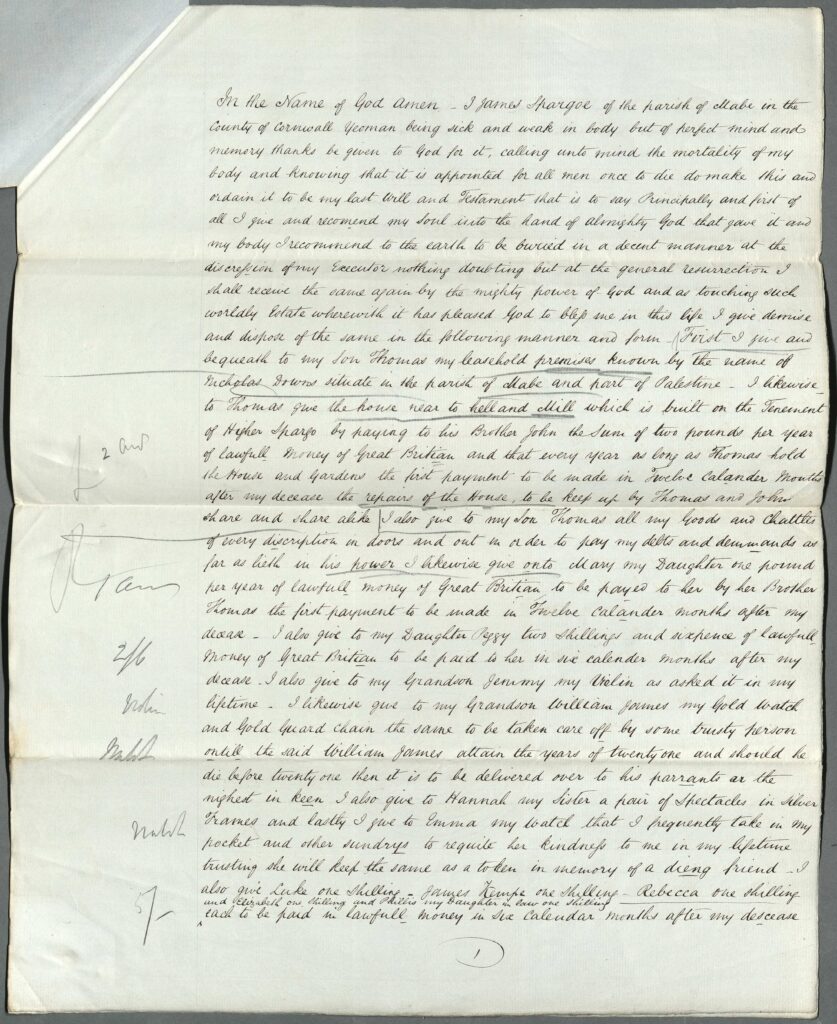 In the Name of God Amen - I James Spargoe of the parish of Mabe in the
County of Cornwall Yeoman being sick and weak in body but of perfect mind and
memory thanks be given to God for it, calling unto mind the mortality of my
body and knowing that it is appointed for all men once to die do make this and
ordain it to be my last Will and Testament that is to say Principally and first of
all I give and recomend my Soul into the hand of Almighty God that gave it and
my body I recommend to the earth to be buried in a decent manner at the
discression of my Executor nothing doubting but at the general resurrection I
shall receive the same again by the mighty power of God and as touching such
worldly Estate wherewith it has pleased God to bless me in this life I give demise
and dispose of the same in the following manner and form (First I give and
bequeath to my Son Thomas my leasehold premises known by the name of
Nicholas Downs situate in the parish of Mabe and part of Palestine - I likewise
to Thomas give the house near to helland Mill which is built on the Tenement
of Higher Spargo by paying to his Brother John the Sum of two pounds per year
of lawfull Money of Great Britian and that every year as long as Thomas hold
£2 and
the House and Gardens the first payment to be made in Twelve Calander Months
after my decease the repairs of the House, to be keep up by Thomas and John
share and share alike I also give to my Son Thomas all my Goods and Chattles
of every discription in doors and out in order to pay my debts and demmands as
far as lieth in his power I likewise give onto Mary my Daughter one pound
per year of lawfull money of Great Britian to be payed to her by her Brother
Thomas the first payment to be made in Twelve Calander months after my
decease - I also give to my Daughter Peggy two Shillings and sixpence of lawfull
2/6
Money of Great Britian to be paid to her in six calender months after my
decease - I also give to my Grandson Jemmy my Violin as asked it in my
Violin
lifetime - I likewise give to my Grandson William James my Gold Watch
and Gold Guard chain the same to be taken care off by some trusty person
Watch
ontill the said William James attain the years of twentyone and should he
die before twentyone then it is to be delivered over to his parrants ar the
nighest in keen I also give to Hannah my Sister a pair of Spectacles in silver
Watch
Frames and lastly I give to Emma my Watch that I frequently take in my
pocket and other sundrys to requite her kindness to me in my lifetime
trusting she will keep the same as a token in memory of a dieng friend - I
also give Luke one Shilling - James Kempe one Shilling - Rebecca one shilling
5/-
and Elizabeth one Shilling and Phillis my Daughter in law one Shilling
each to be paid in lawfull money in six Calendar months after my descease
1